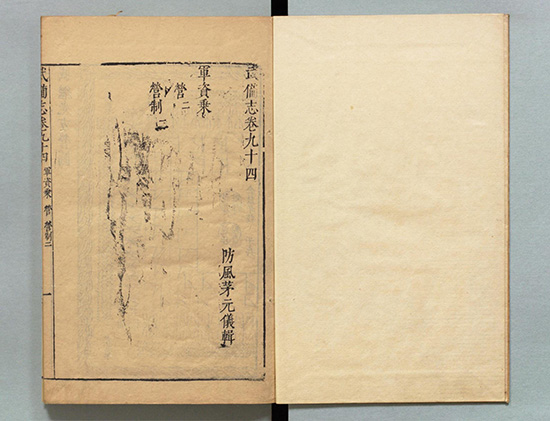 武備志卷九十四
防風茅元儀輯
軍資乘
營二
營制二
武備志卷九十四 軍資乘 營 營制二 一